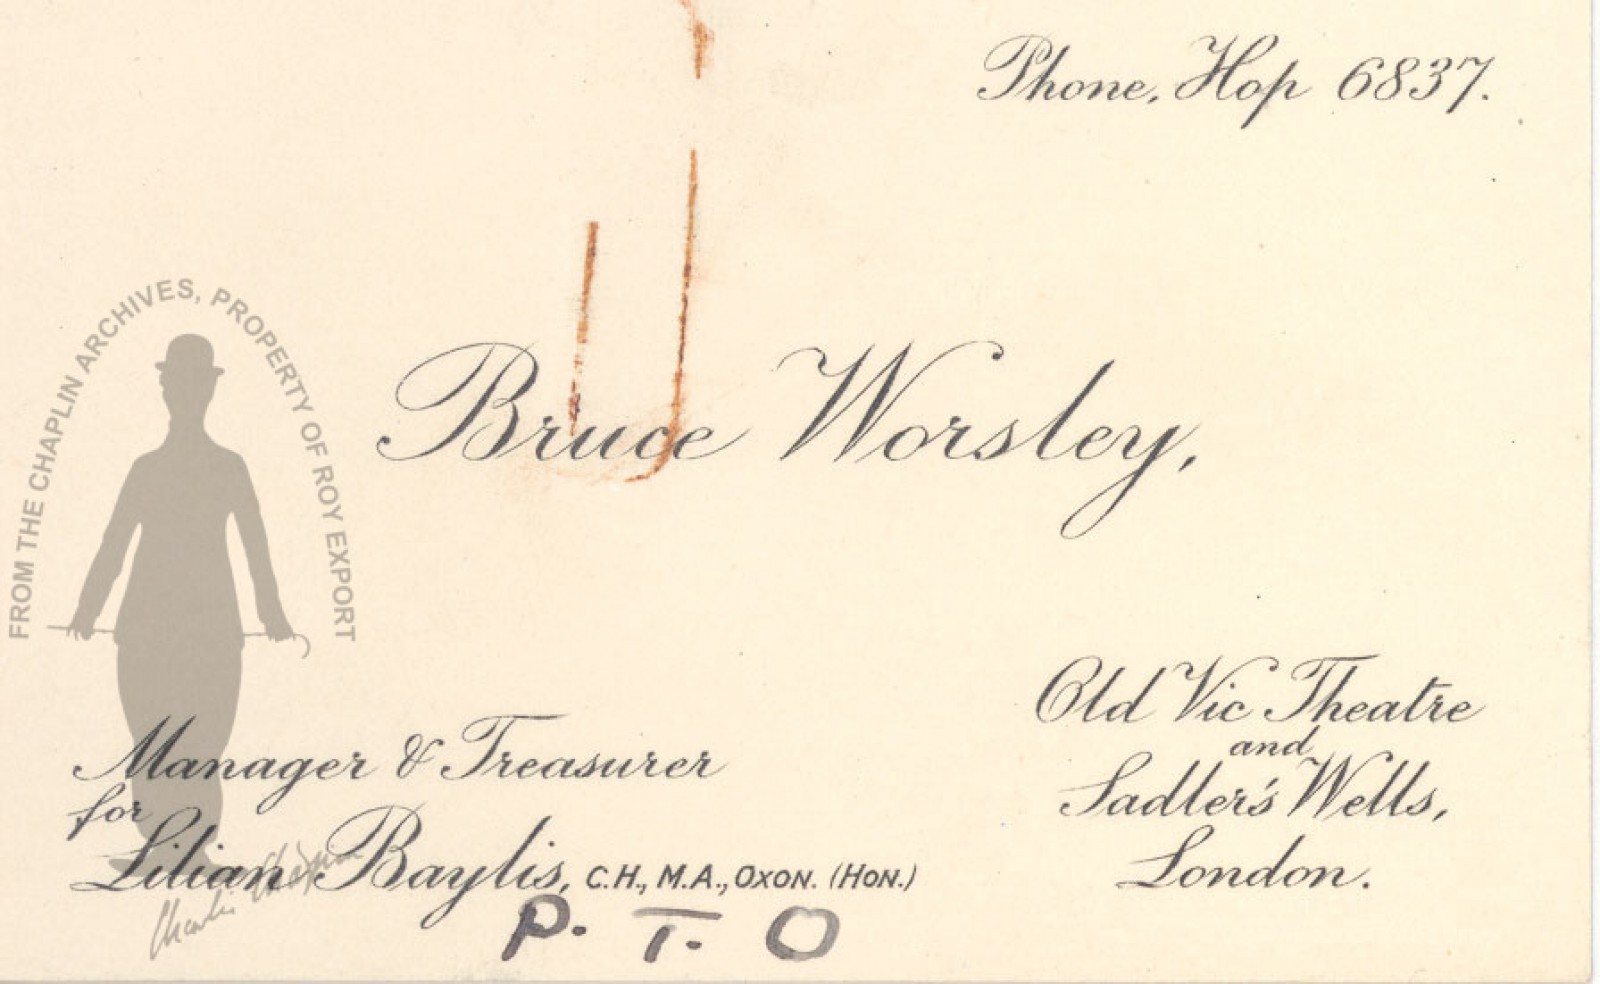 Phone, Hop 6837.
FROM THE CHAPLIN ARCHIVES, PROPERTY OF ROY EXPORT
Bruce Worsley,
Manager & Treasurer
for
Lilian Baylis, C.H., M.A., OXON. (HON.)
Old Vic Theatre
and
Sadler's Wells,
London.
Charlie Chaplin
P. T. O